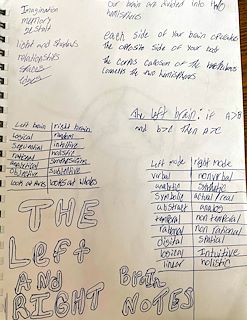 Imagination
memory
gestalt
light and shadows
relationships
shapes
our brain are divided into two
hemisphere
each side of your brain operates
the opposite side of your body
The corpus callosum of the
connects the two hemispheres
The left brain: if A>B
and B>C then A>C
Left brain | right brain
Logical | random
Sequential | intuitive
rational | holistic
analytical | synthesizing
objective | subjective
looks at parts | looks at wholes
Left mode | right mode
verbal | nonverbal
analytic | synthetic
Symbolic | actual/real
abstract | analog
temporal | non temporal
rational | non rational
digital | spatial
logical | Intuitive
linear | holistic
THE
Left
AND
RIGHT
Brain
NOTES